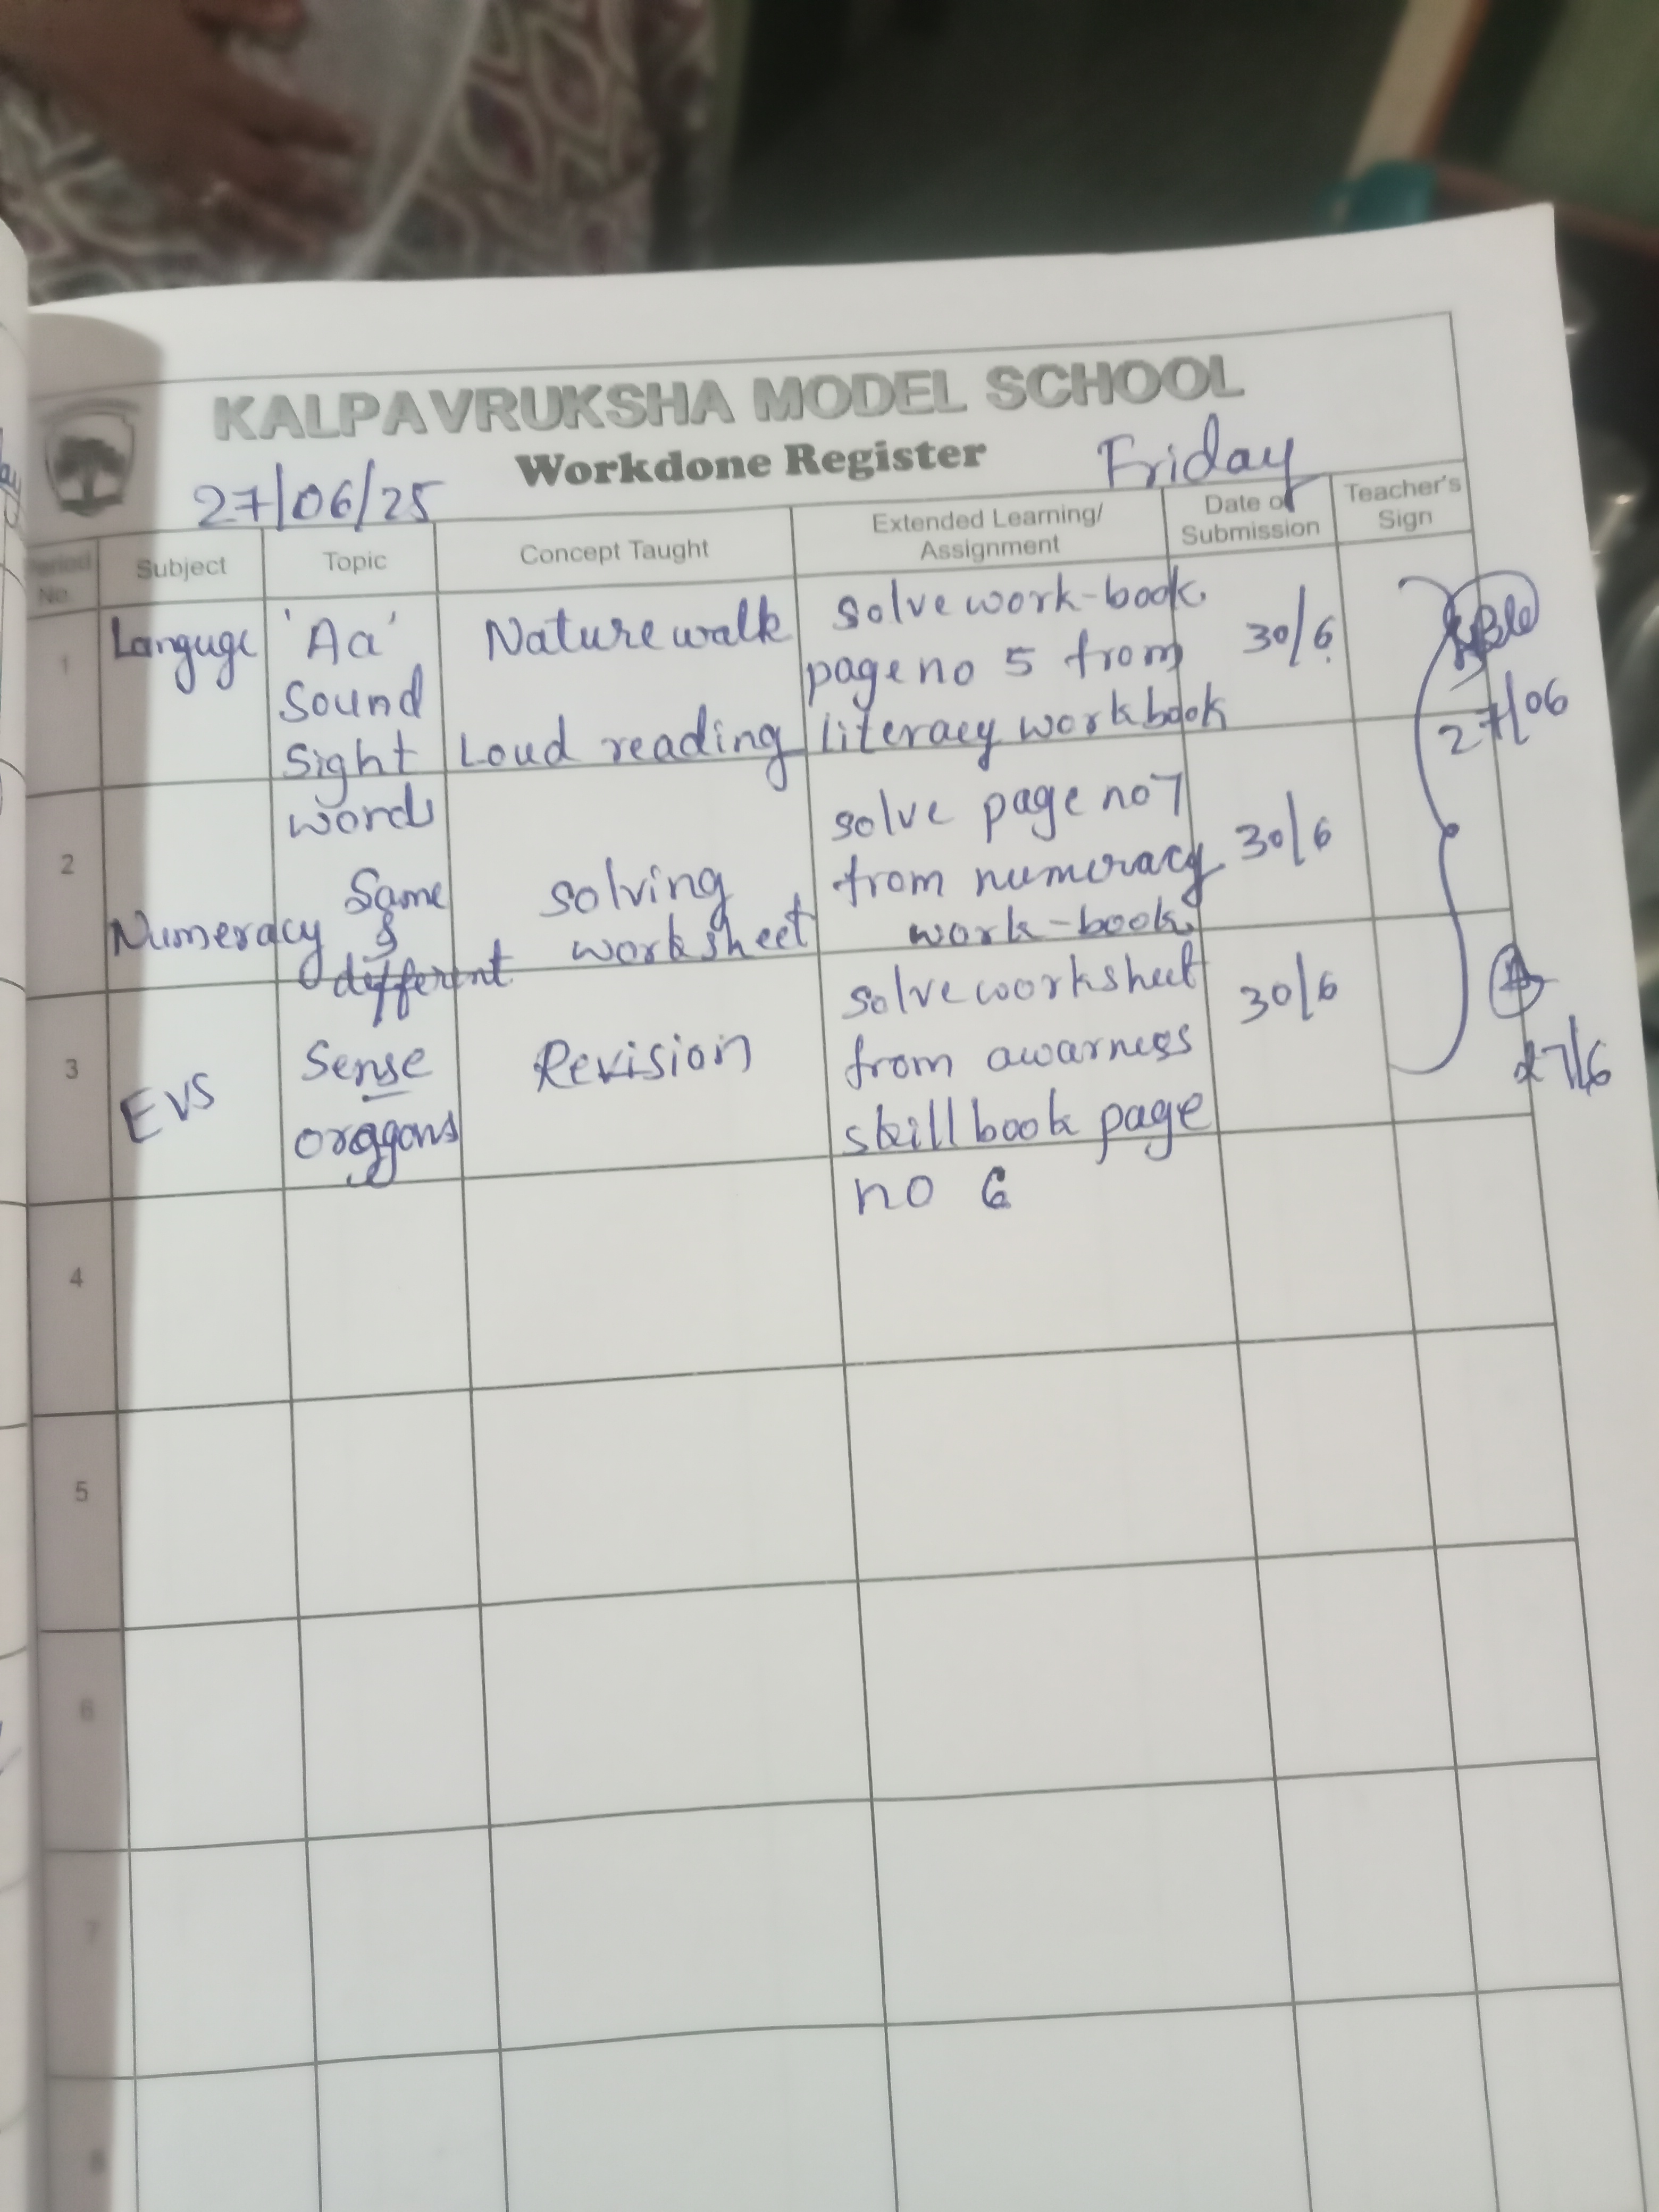 KALPAVRUKSHA MODEL SCHOOL
Workdone Register
27/06/25
Friday
Period No.
Subject
Topic
Concept Taught
Extended Learning/
Assignment
Date of
Submission
Teacher's
Sign
1
Languge
'Aa'
Sound
Sight
words
Nature walk
Loud reading
solve work-book
page no 5 from
literacy workbook
30/6
27/06
2
Numeracy
Same
&
different
solving
worksheet
solve page no 7
from numeracy
work-book
30/6
3
EVS
Sense
orggans
Revision
solve worksheet
from awarness
skill book page
no 6
30/6
27/6
4
5
6
7
8